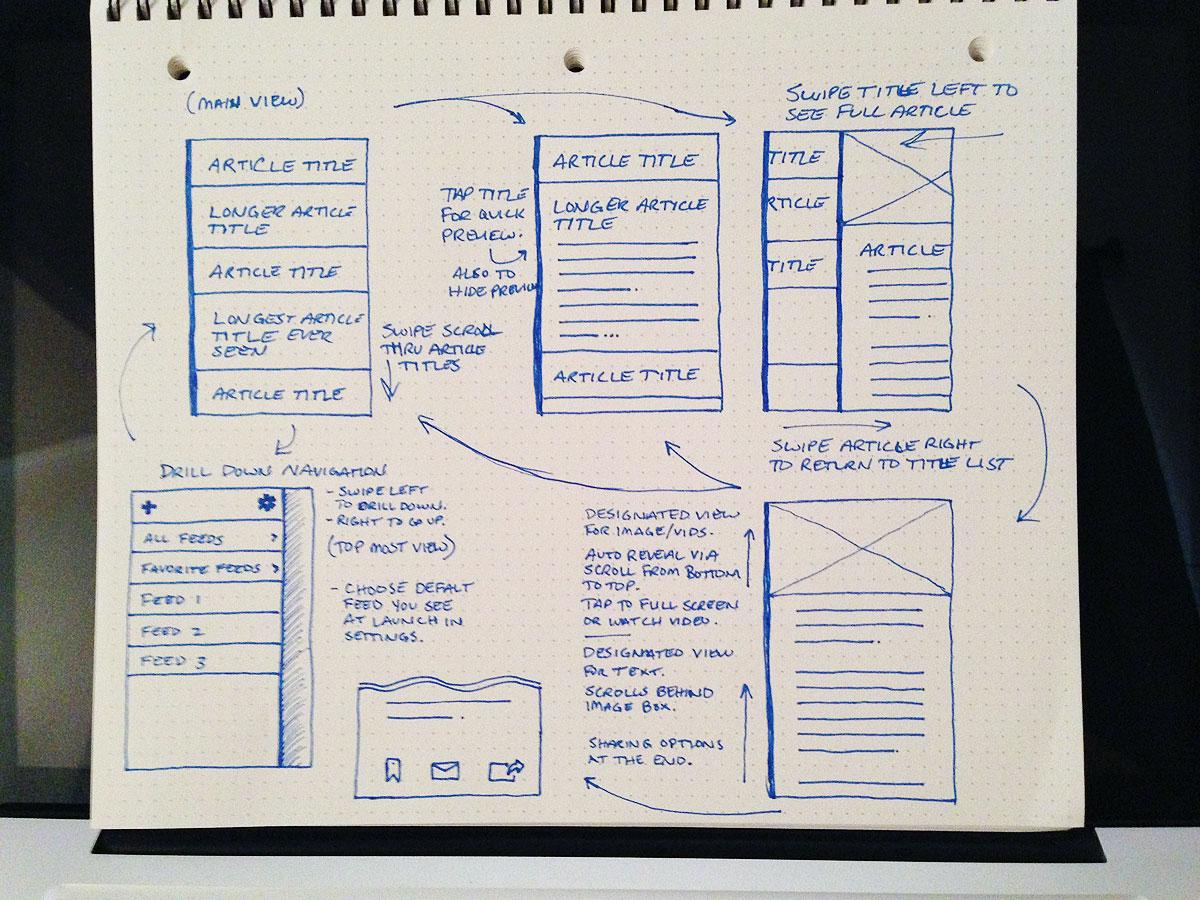 (MAIN VIEW)
ARTICLE TITLE
LONGER ARTICLE
TITLE
ARTICLE TITLE
LONGEST ARTICLE
TITLE EVER
SEEN
ARTICLE TITLE
SWIPE SCROLL
THRU ARTICLE
TITLES
TAP TITLE
FOR QUICK
PREVIEW.
ALSO TO
HIDE PREVIEW
ARTICLE TITLE
LONGER ARTICLE
TITLE
ARTICLE TITLE
SWIPE TITLE LEFT TO
SEE FULL ARTICLE
TITLE
RTICLE
TITLE
ARTICLE
SWIPE ARTICLE RIGHT
TO RETURN TO TITLE LIST
DRILL DOWN NAVIGATION
+ *
ALL FEEDS >
FAVORITE FEEDS >
FEED 1
FEED 2
FEED 3
- SWIPE LEFT
TO DRILL DOWN.
- RIGHT TO GO UP.
(TOP MOST VIEW)
- CHOOSE DEFALT
FEED YOU SEE
AT LAUNCH IN
SETTINGS.
DESIGNATED VIEW
FOR IMAGE/VIDS.
AUTO REVEAL VIA
SCROLL FROM BOTTOM
TO TOP.
TAP TO FULL SCREEN
OR WATCH VIDEO.
DESIGNATED VIEW
FOR TEXT.
SCROLLS BEHIND
IMAGE BOX.
SHARING OPTIONS
AT THE END.